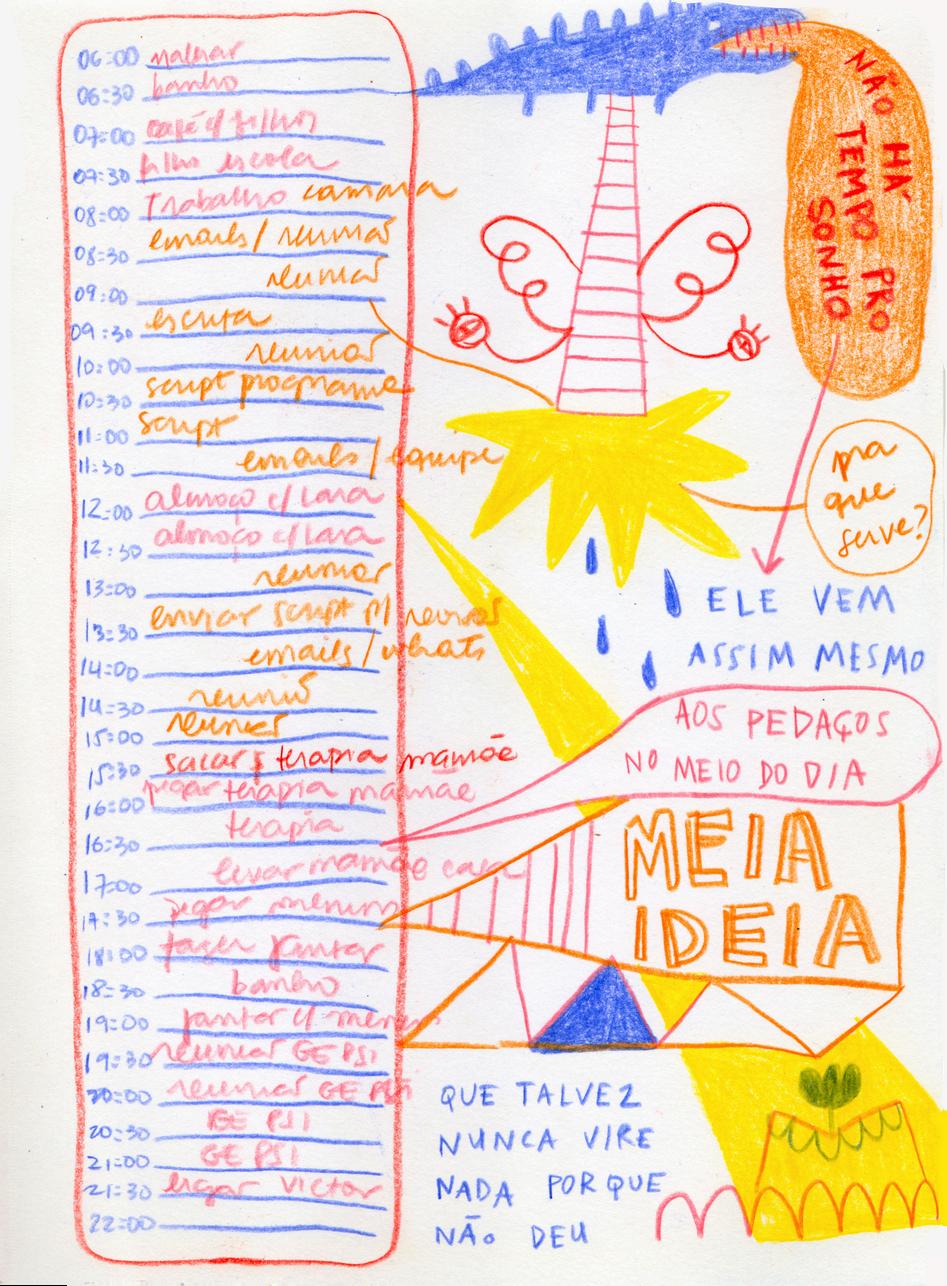 06:00 malhar
06:30 banho
07:00 café c/ filhos
07:30 filho escola
08:00 trabalho camara
08:30 emails / reunião
09:00 reunião
09:30 escrita
10:00 reunião
10:30 script programa
11:00 script
11:30 emails / equipe
12:00 almoço c/ Lara
12:30 almoço c/ Lara
13:00 reunião
13:30 enviar script p/
14:00 emails / whats
14:30 reunião
15:00 reunião
15:30 sacar $ terapia mamãe
16:00 pegar terapia mamãe
16:30 terapia
17:00 levar mamãe casa
17:30 pegar menino
18:00 fazer jantar
18:30 banho
19:00 jantar c/ menino
19:30 reunião GE PSI
20:00 reunião GE PSI
20:30 GE PSI
21:00 GE PSI
21:30 ligar Victor
22:00
NÃO HÁ
TEMPO PRO
SONHO
pra
que
serve?
ELE VEM
ASSIM MESMO
AOS PEDAÇOS
NO MEIO DO DIA
MEIA
IDEIA
QUE TALVEZ
NUNCA VIRE
NADA PORQUE
NÃO DEU